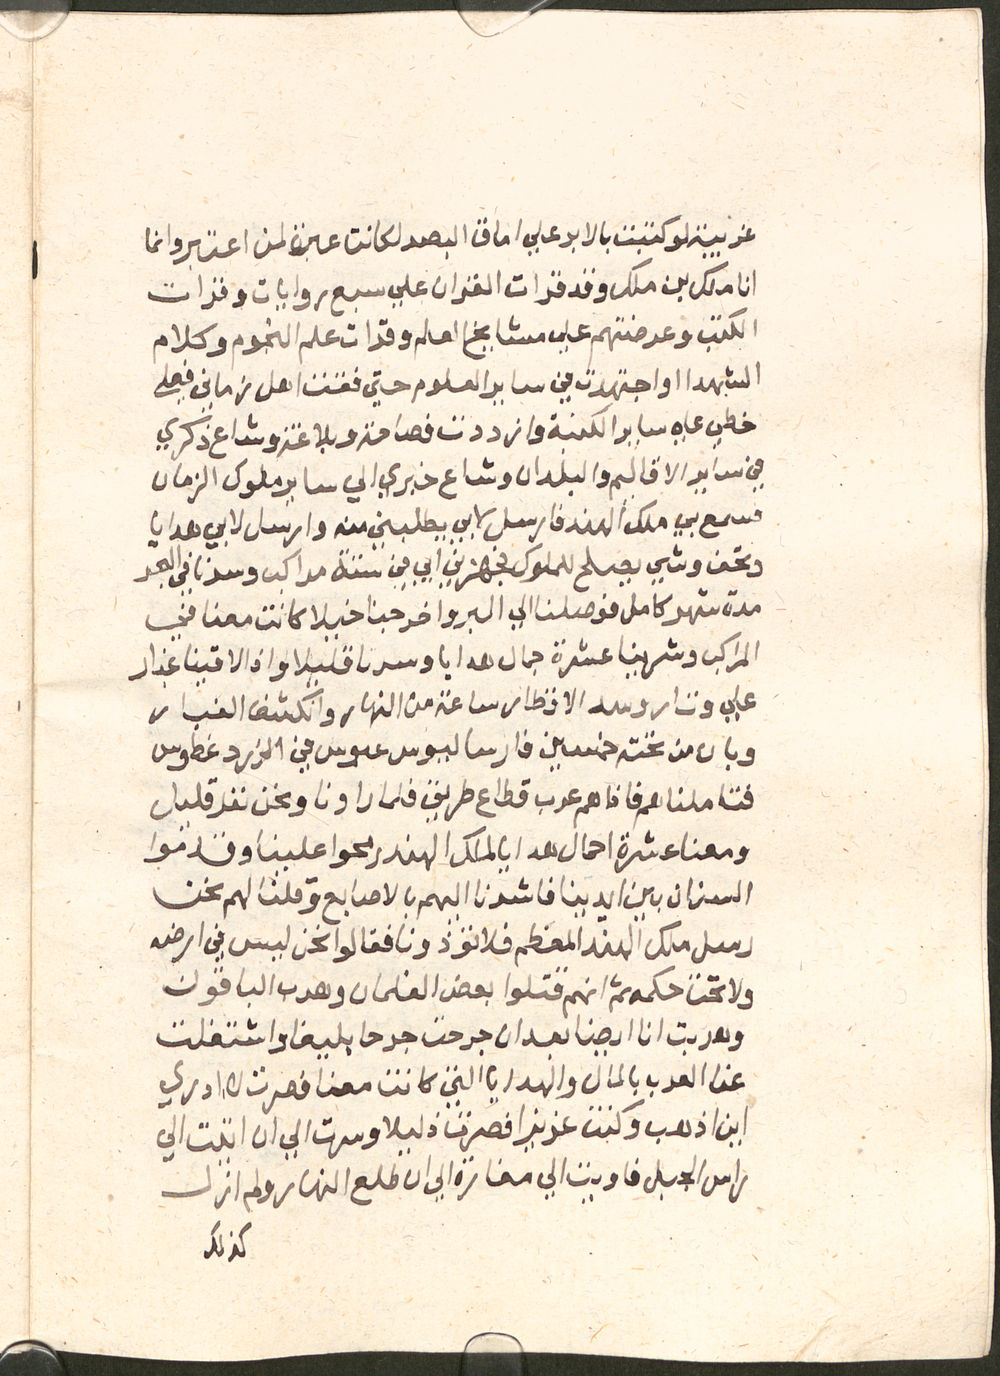 غريبة لو كتبت بالابر علي اماق البصر لكانت عبرة لمن اعتبر وانا
انا ملك بن ملك وقد قرات القران علي سبع روايات وقرات
الكتب وعرضتهم علي مشايخ العلم وقرات علم النجوم وكلام
الشهدا واجتهدت في ساير العلوم حتي فقت اهل زماني فعلي
خطي علي ساير الكتبة وازددت فصاحة وبلاغة وشاع ذكري
في ساير الاقاليم والبلدان وشاع خبري الي ساير ملوك الزمان
فسمع بي ملك الهند فارسل لابي يطلبني منه وارسل لابي هدايا
وتحف وشي يصلح للملوك فجهزني ابي في ستة مراكب وسرنا في البحر
مدة شهر كامل فوصلنا الي البر واخرجنا خيلا كانت معنا في
المراكب وشرينا عشرة جمال هدايا وسرنا قليلا واذا لاقينا غبار
علي وثار وسد الاقطار ساعة من النهار وانكشف الغبار
وبان من تحته خمسين فارسا ليوس عبوس في الزرد غطوس
فتاملناهم فاذا هم عرب قطاع طريق فلما راونا ونحن نفر قليل
ومعنا عشرة احمال هدايا لملك الهند رمحوا علينا وقدموا
السنان بين ايدينا فاشرنا اليهم بالاصابع وقلنا لهم نحن
رسل ملك الهند المعظم فلا توذونا فقالوا نحن ليس في ارضه
ولا تحت حكمه ثم انهم قتلوا بعض الغلمان وهرب الباقون
وهربت انا ايضا بعد ان جرحت جرحا بليغا واشتغلت
عنا العرب بالمال والهدايا التي كانت معنا فصرت لا ادري
اين اذهب وكنت عزيزا فصرت ذليلا وسرت الي ان اتيت الي
راس الجبل فاويت الي مغارة الي ان طلع النهار ولم ازل
كذلك